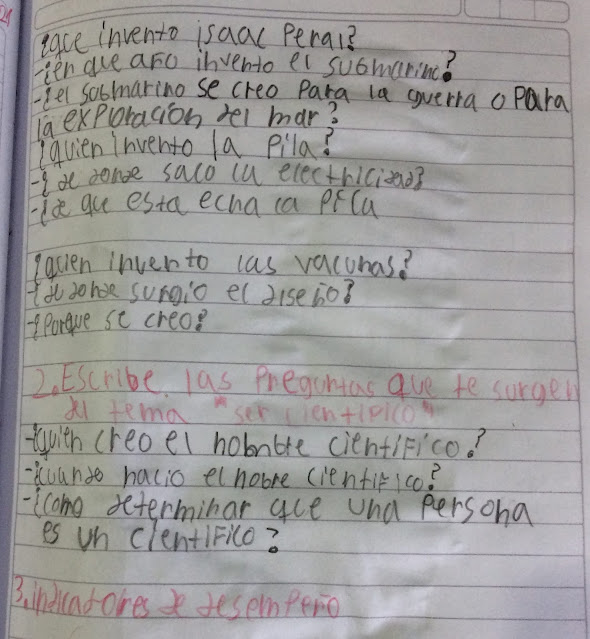 ¿que invento isaac Peral?
-¿en que año invento el submarino?
-¿el submarino se creo Para la guerra o Para
la exploracion del mar?
¿quien invento la Pila?
-¿de donde saco la electricidad?
-¿de que esta echa la Pila
¿quien invento las vacunas?
-¿de donde surgio el diseño?
-¿Porque se creo?
2. Escribe las Preguntas que te surgen
del tema "ser cientifico"
-¿quien creo el nobmbre cientifico?
-¿cuando nacio el nobre cientifico?
-¿como determinar que una Persona
es un cientifico?
3. indicadores de desempeño